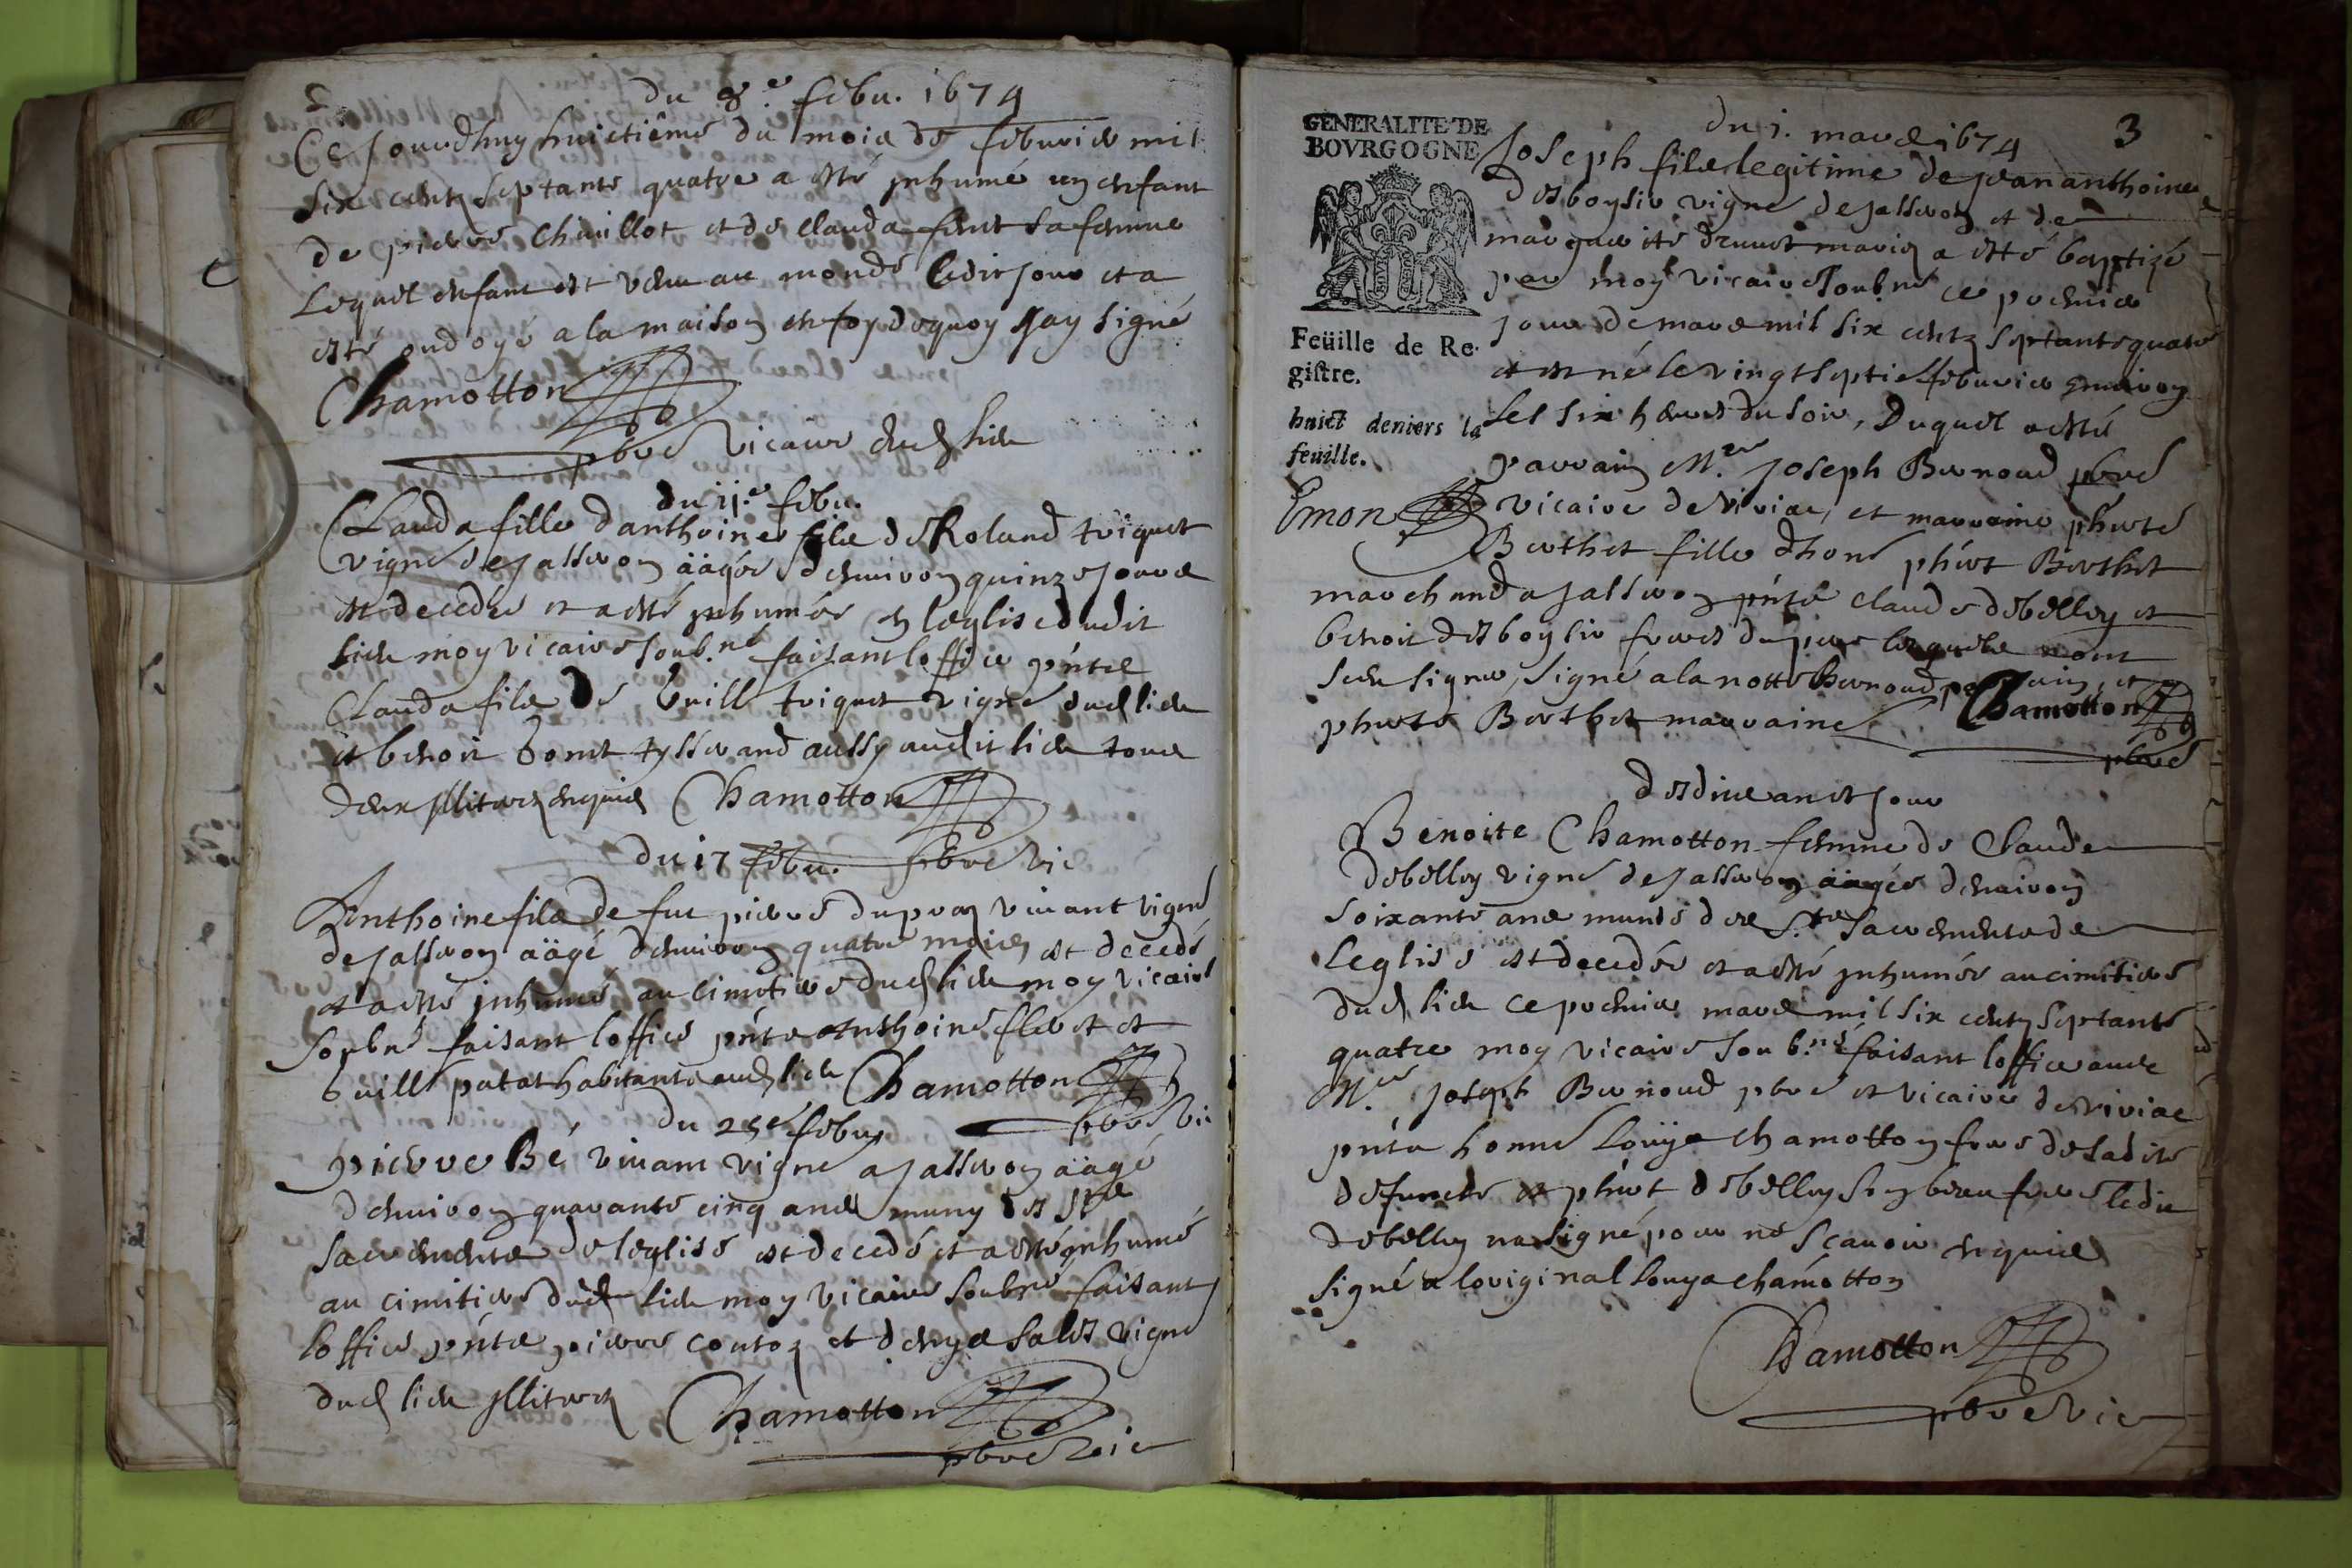 2
du 8.e febu. 1674
Ce jourdhuy huictiême du mois de feburier mil
six centz septante quatre a esté inhumé un enfant
de pierre Chuillot et de clauda sa femme
Lequel enfant est venu au monde ledit jour et a
esté ondoyé a la maison en foy dequoy jay signé
Chamotton
pbre vicaire dud lieu
du 11.e febu.
Clauda fille danthoine fils de Roland triquet
vigne de jasseron äägée denuiron quinze jours
est decedée et a esté inhumée en leglise dudit
lieu moy vicaire soub.né faisant loffice pnts
Clauda fils de Guill triquet vigne dud lieu
et benoit tysserand aussy audit lieu tous
deux illiterez enquis Chamotton
pbre vic
du 17 febu.
Anthoine fils de fut pierre dupras viuant vigne
de jasseron äägé denuiron quatre moies est decedé
et a esté inhumé au cimitiere dud lieu moy vicaire
soubné faisant loffice pnts Anthoine et
Guill patat habitants aud lieu Chamotton
pbre vic
du 25e febu
pierre Bé viuant vigne a jasseron äägé
denuiron quarante cinq ans muny des Sts
sacrements de leglise est decedé et a esté inhumé
au cimitiere dud lieu moy vicaire soubné faisant
loffice pnts pierre et denys vigne
dud lieu illiterez Chamotton
pbre vic
3
GENERALITE DE
BOVRGOGNE
Feüille de Re-
gistre.
huict deniers la
feüille.
Emon
du 1. mars 1674
Joseph fils legitime de jean anthoine
desboysir vigne de jasseron et de
marguerite mariez a esté baptizé
par moy vicaire soub.né ce premier
jour de mars mil six centz septante quatre
et est né le vingt septie febvrier enuiron
les six heures du soir, Duquel a esté
parrain M.re Joseph Bernoud pbre
vicaire de Viriac, et marraine phirte
Berthet fille dhone phirt Berthet
marchand a jasseron pnts claude debelley et
benoit desboysir freres du pere lesquels nont
sceu signer, signé a la notte Bernoud parrain, et
phirte Berthet marraine Chamotton
pbre
desdits an et jour
Benoite Chamotton femme de Claude
debelley vigne de jasseron äägée denuiron
soixante ans munie des S.ts sacrements de
Leglise est decedée et a esté inhumée au cimitiere
dud lieu ce premier mars mil six centz septante
quatre moy vicaire soub.né faisant loffice auec
M.re Joseph Bernoud pbre et vicaire de viriac
pnts honne Loüys Chamotton frere de ladite
defuncte et phirt debelley son beau frere ledit
debelley na signé pour ne sçauoir enquis
signé a loriginal Louys chamotton
Chamotton
pbre vic